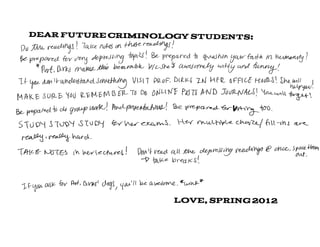 DEAR FUTURE CRIMINOLOGY STUDENTS:
Do the readings! Take notes on those readings!
Be prepared for very depressing topics! Be prepared to question your faith in humanity!
*Prof. Dirks makes this bearable b/c she's awesomely witty and funny!
If you don't understand something VISIT PROF. DIRKS IN HER OFFICE HOURS! She will help you!
MAKE SURE YOU REMEMBER TO DO ONLINE POSTS AND JOURNALS! You will forget!
Be prepared to do group work! And presentations! Be prepared for writing too.
STUDY STUDY STUDY for her exams. Her multiple choice/fill-ins are
really, really hard.
TAKE NOTES in her lectures! Don't read all the depressing readings @ once. space them out.
→ take breaks!
If you ask for Prof. Dirks' dogs, you'll be awesome. *wink*
LOVE, SPRING 2012